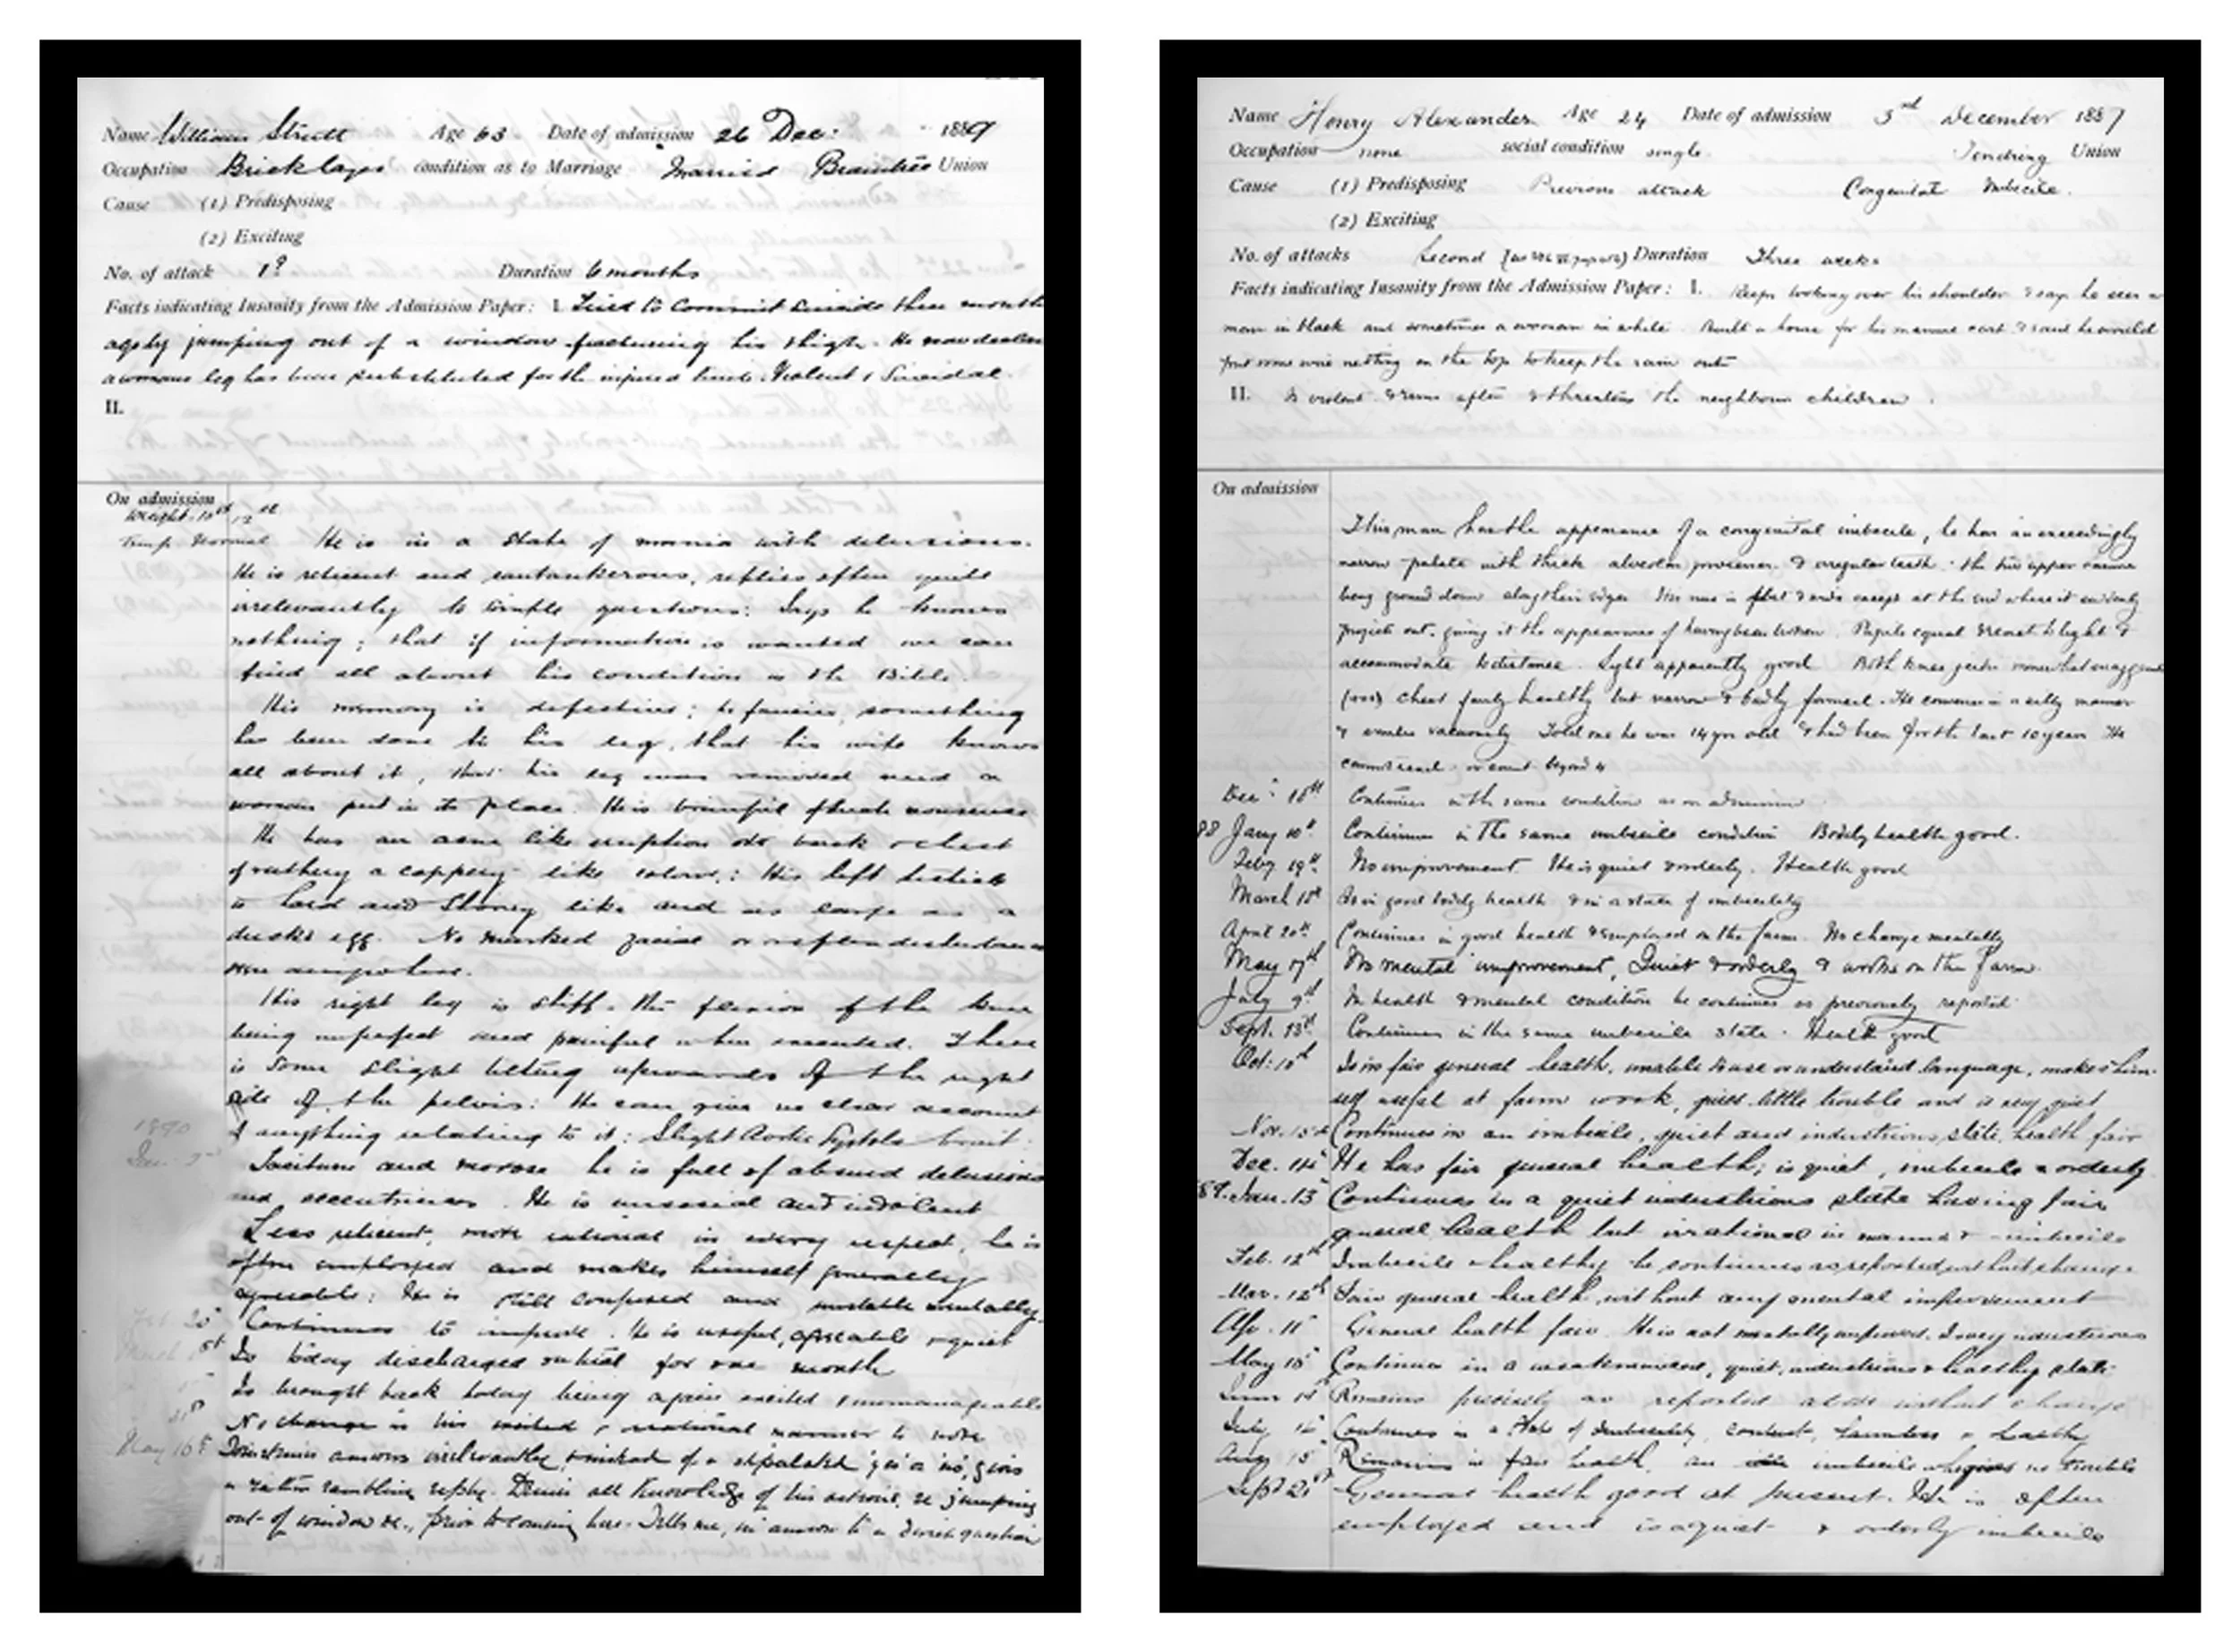 Name William Strutt Age 63 Date of admission 26 Dec: 1889
Occupation Bricklayer condition as to Marriage Married Braintree Union
Cause (1) Predisposing
(2) Exciting
No. of attack 1? Duration 6 months
Facts indicating Insanity from the Admission Paper: I. Tried to commit suicide three months
ago by jumping out of a window fracturing his thigh. He now declares
a womans leg has been substituted for the injured limb. Violent & Suicidal.
II.
On admission
Weight
Temp. Normal He is in a state of mania with delusions.
He is reticent and cantankerous, replies often quite
irrelevantly to simple questions: Says he knows
nothing; that if information is wanted we can
find all about his condition in the Bible.
His memory is defective; he fancies something
has been done to his leg, that his wife knows
all about it, that his leg was removed and a
womans put in its place. He is brimful of such nonsense
He has an acne like eruption on back & chest
of rather a coppery-like colour: His left testicle
is hard and Stoney like and as large as a
ducks egg. No marked facial or
seen anywhere.
His right leg is stiff. the flexion of the knee
being imperfect and painful when executed. There
is some slight tilting upwards of the right
side of the pelvis: He can give no clear account
of anything relating to it: Slight Aortic Systolic bruit.
1890
Jan. Taciturn and morose he is full of absurd delusions
and eccentricities. He is unsocial and indolent
Less reticent, more rational in every respect, he is
often employed and makes himself generally
agreeable: He is still confused and unstable mentally.
Continues to improve. He is useful, agreeable & quiet
Is today discharged on trial for one month
Is brought back today being again excited & unmanageable
No change in his excited & irrational manner to note
May 16th Sometimes answers irrelevantly, & instead of a stipulated 'yes' or 'no', gives
a rather rambling reply. Denies all knowledge of his actions, re jumping
out of window &c., prior to coming here. Tells me, in answer to a direct question
Name Henry Alexander Age 24 Date of admission 3rd December 1887
Occupation none social condition single Tendring Union
Cause (1) Predisposing Previous attack Congenital Imbecile.
(2) Exciting
No. of attacks Second Duration Three weeks
Facts indicating Insanity from the Admission Paper: I. Keeps looking over his shoulder & says he sees a
man in black and sometimes a woman in white. Built a house for his manure cart & said he would
put some wire netting on the top to keep the rain out
II. Is violent & runs after & threatens the neighbours children.
On admission
This man has the appearance of a congenital imbecile, he has an exceedingly
narrow palate with thick alveolar processes & irregular teeth. the two upper
being ground down along their edges His nose is flat & wide except at the end where it suddenly
projects out, giving it the appearance of having been broken. Pupils equal & react to light &
accommodate to distance. Sight apparently good Both knee jerks somewhat exaggerated
chest fairly healthy but narrow & badly formed. He converses in a silly manner
& smiles vacuously Told me he was 14 yrs old & had been for the last 10 years He
cannot read or count beyond 4
Dec: 18th Continues in the same condition as on admission
88 Jany 10th Continues in the same imbecile condition Bodily health good.
Feby 19th No improvement He is quiet & orderly. Health good
March 18th Is in good bodily health & in a state of imbecility
April 20th Continues in good health & employed on the farm. No change mentally
May 17th No mental improvement, Quiet & orderly & works on the Farm
July 9th In health & mental condition he continues as previously reported
Sept. 13th Continues in the same imbecile state. Health good
Oct: 10th Is in fair general health, unable to use or understand language, makes him-
self useful at farm work, gives little trouble and is very quiet
Nov. 15 Continues in an imbecile, quiet and industrious state, health fair
Dec. 14 He has fair general health; is quiet, imbecile & orderly
89. Jan. 13 Continues in a quiet industrious state having fair
general health but irrational in manner & imbecile
Feb. 12th Imbecile & healthy he continues as reported without change.
Mar. 12th Fair general health, without any mental improvement
Apr. 11 General health fair. He is not mentally improved. Is very industrious
May 10 Continues in a weakminded, quiet, industrious & healthy state
June 14 Remains precisely as reported above without change
July 12 Continues in a state of imbecility, content, harmless & healthy
Aug. 15 Remains in fair health, an imbecile who gives no trouble
Sept 21st General health good at present. He is often
employed and is a quiet & orderly imbecile